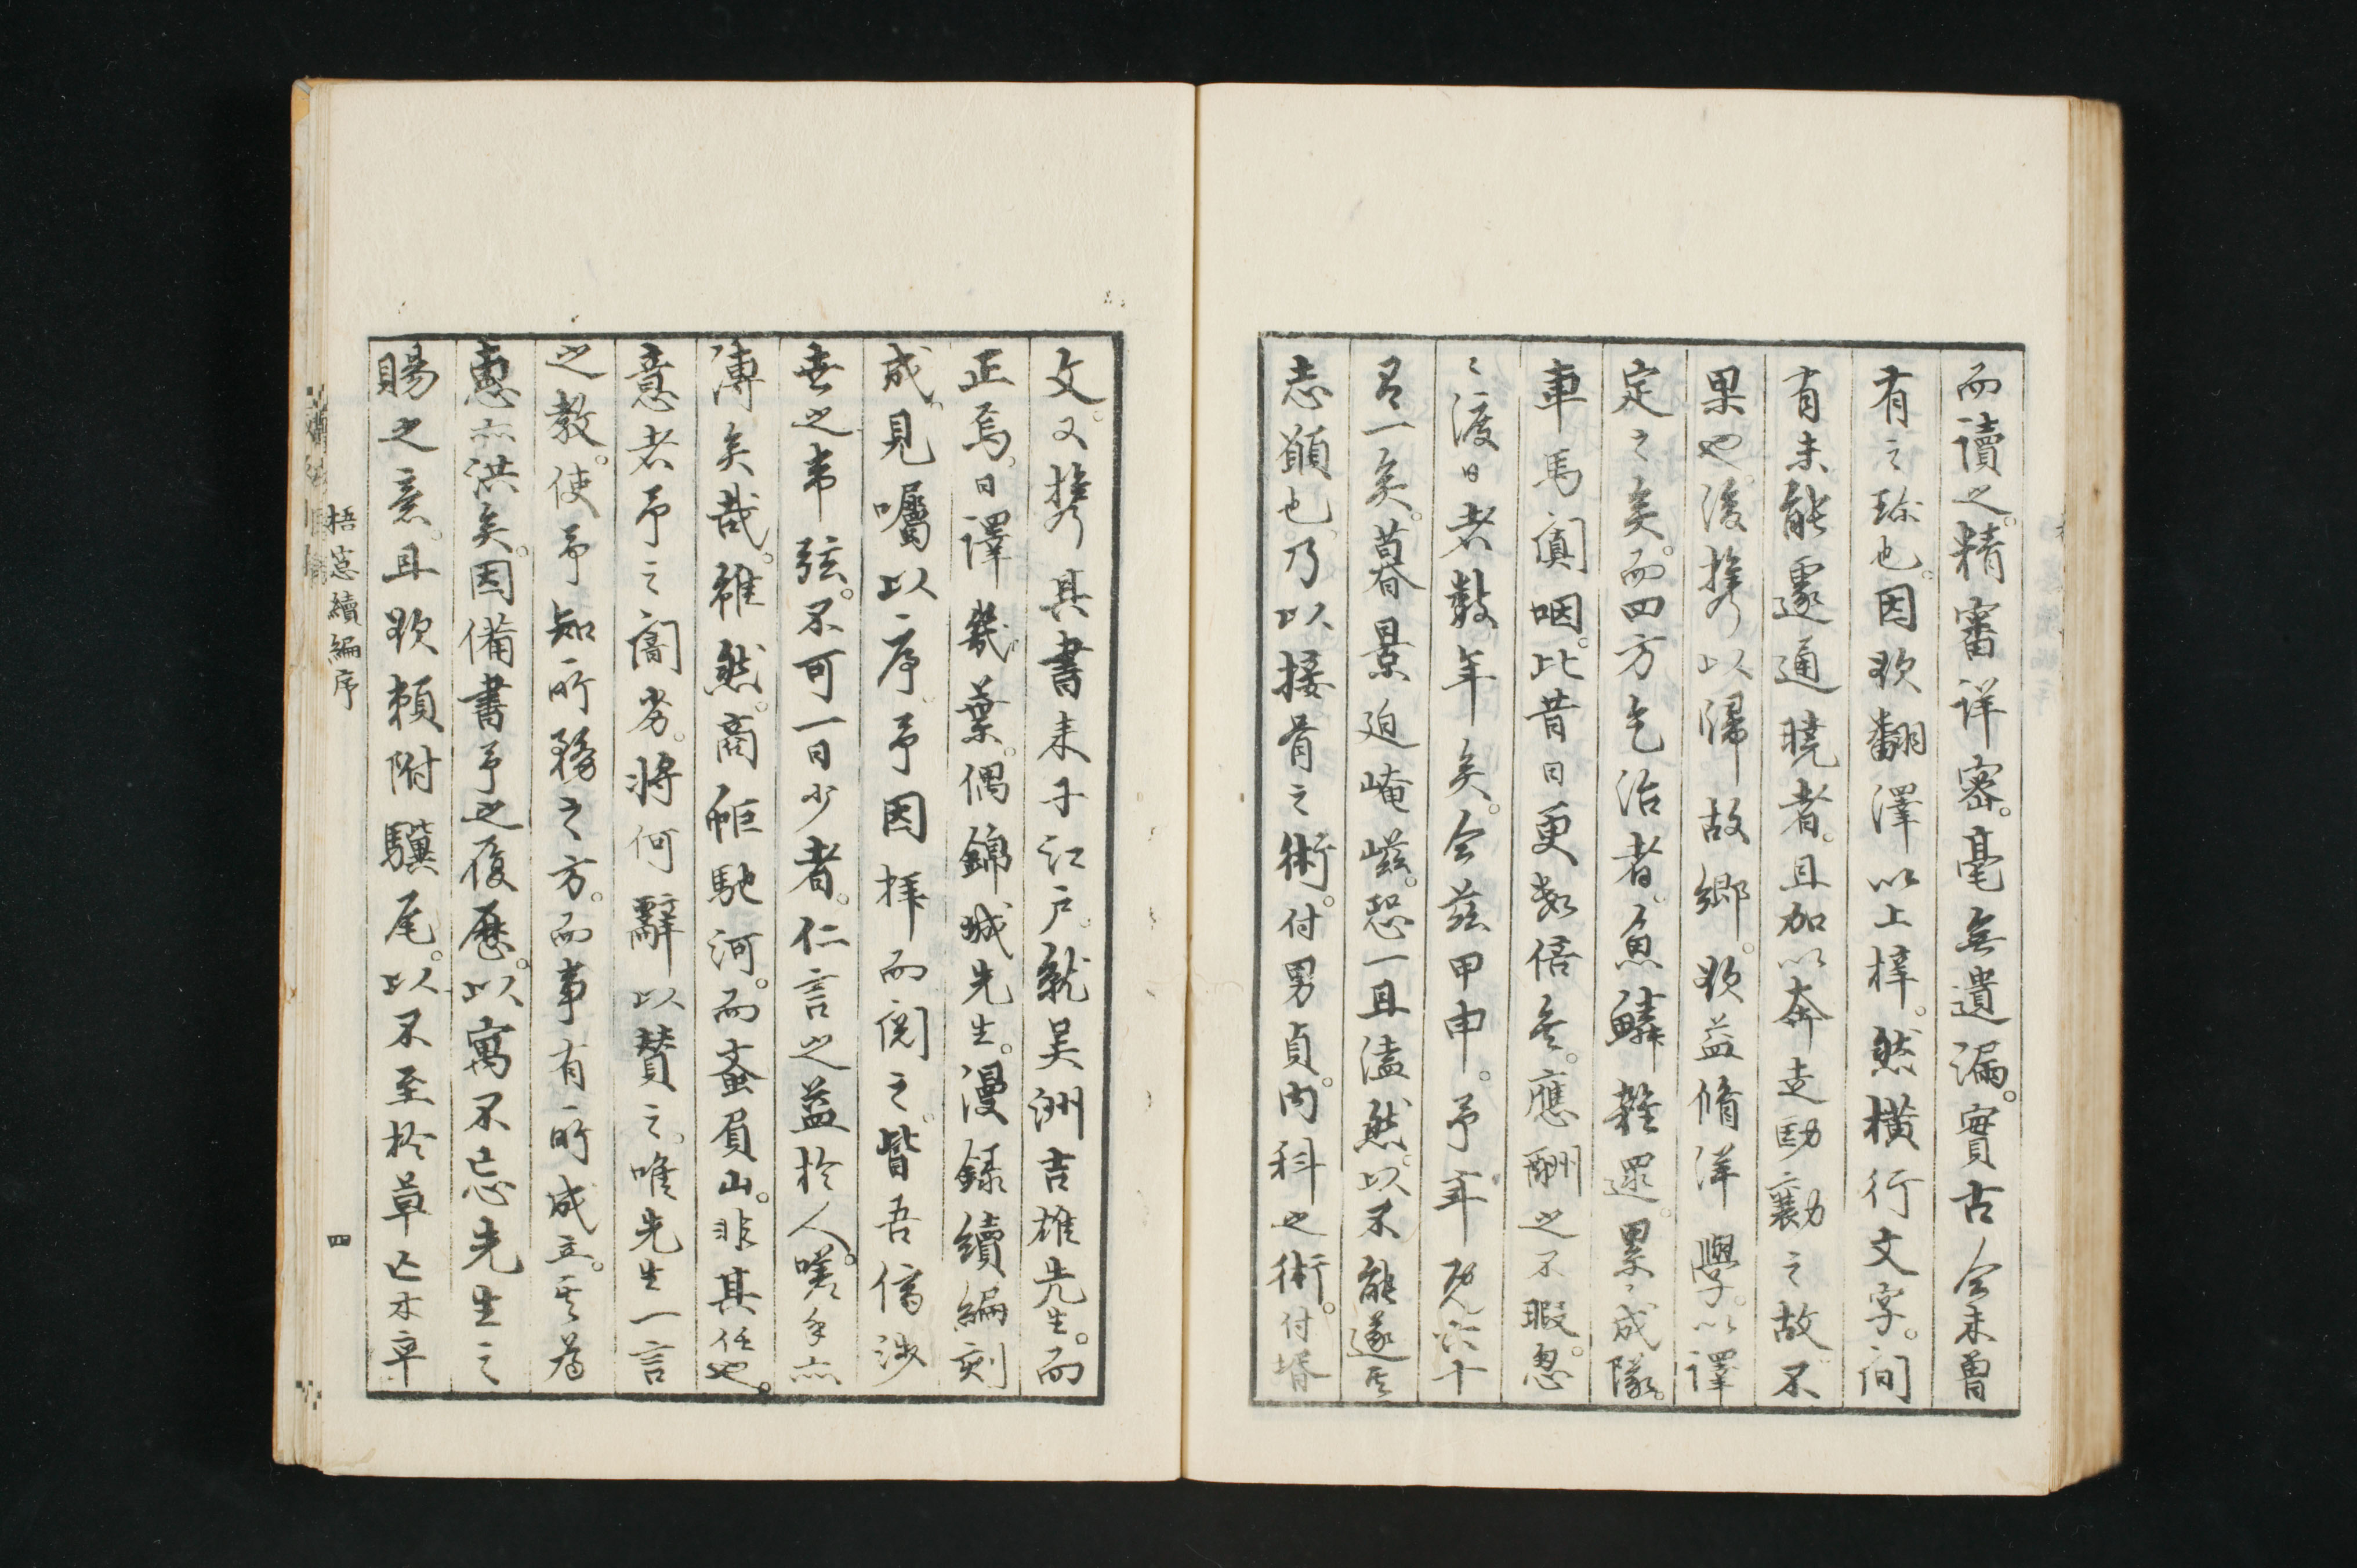 而讀之。精審詳密。毫無遺漏。實古今未曾
有之珎也。因欲翻澤以上梓。然橫行文字。間
有未能遽通曉者。且加以奔走劻勷之故。不
果也。後携以歸故鄉。欲益脩洋學。以譯
定之矣。而四方乞治者。魚鱗雜遝。累〻成隊。
車馬闐咽。比昔日更數倍矣。應酬之不暇。怱
〻渡日者數年矣。今茲甲申。予年既六十
有一矣。暮景迫崦嵫。恐一旦溘然。以不能遂其
志願也。乃以接骨之術。付男貞。內科之術。付壻
文。又携其書来于江戶。就吴洲吉雄先生。而
正焉。日譯幾葉。偶錦城先生。漫録續編刻
成。見囑以序。予因拜而閱之。皆吾儕涉
世之韋弦。不可一日少者。仁言之益於人。嗟乎亦
溥矣哉。雖然。商蚷馳河。而蚉負山。非其任也。
意者予之闇劣。將何辭以賛之。唯先生一言
之教。使予知所務之方。而事有所成立。其為
惠亦洪矣。因備書予之履歷。以寓不忘先生之
賜之意。且欲頼附驥尾。以不至於草亡木卒
梧窓續編序
四